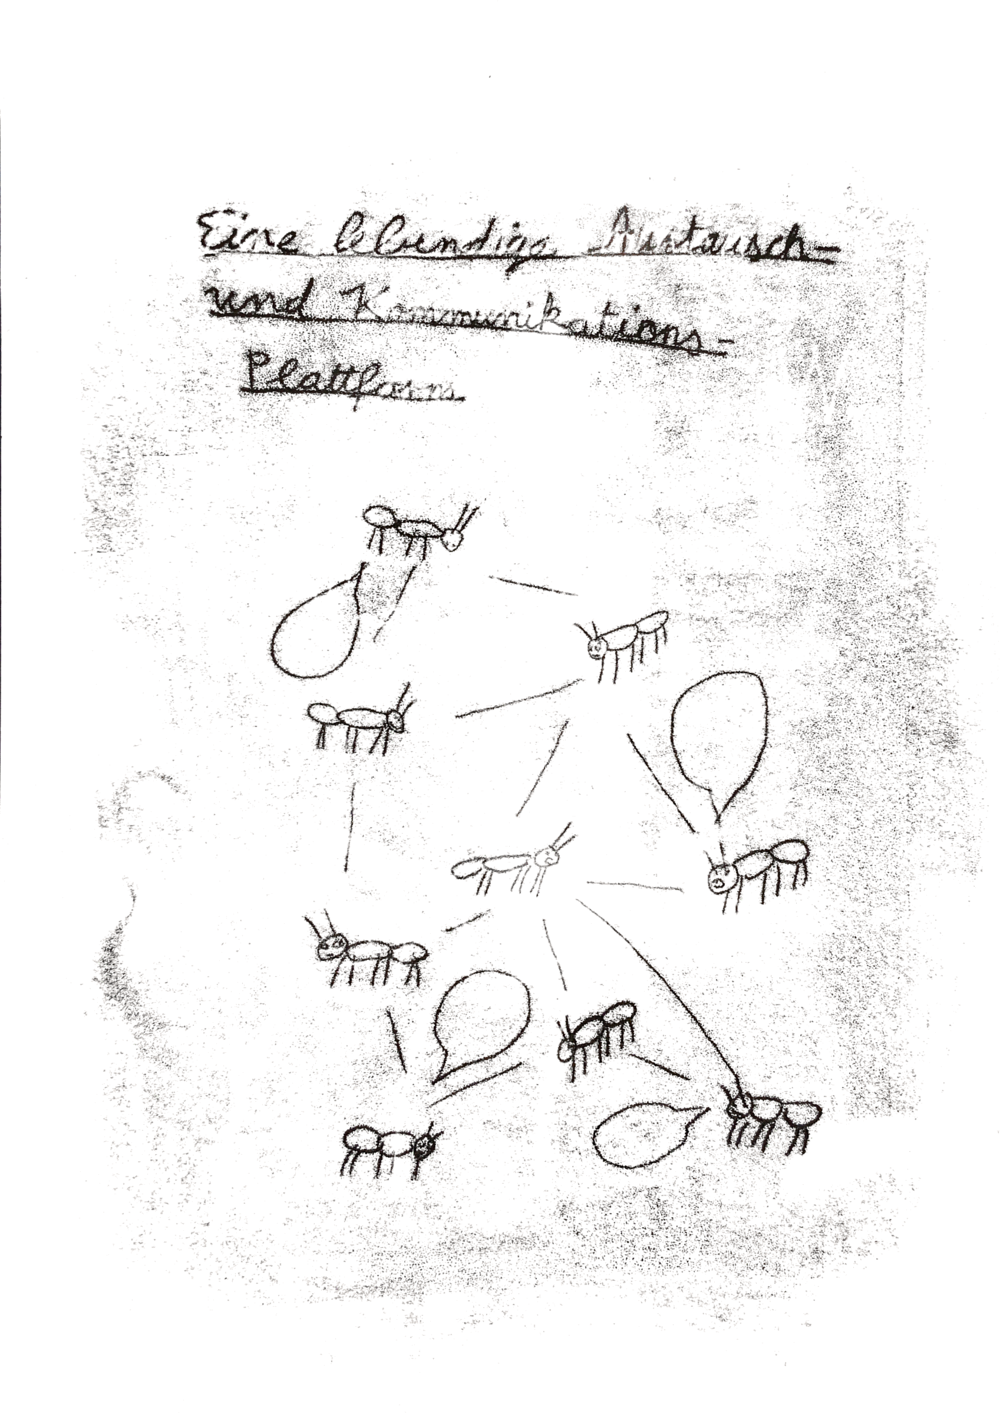 Eine lebendige Austausch-
und Kommunikations-
Plattform